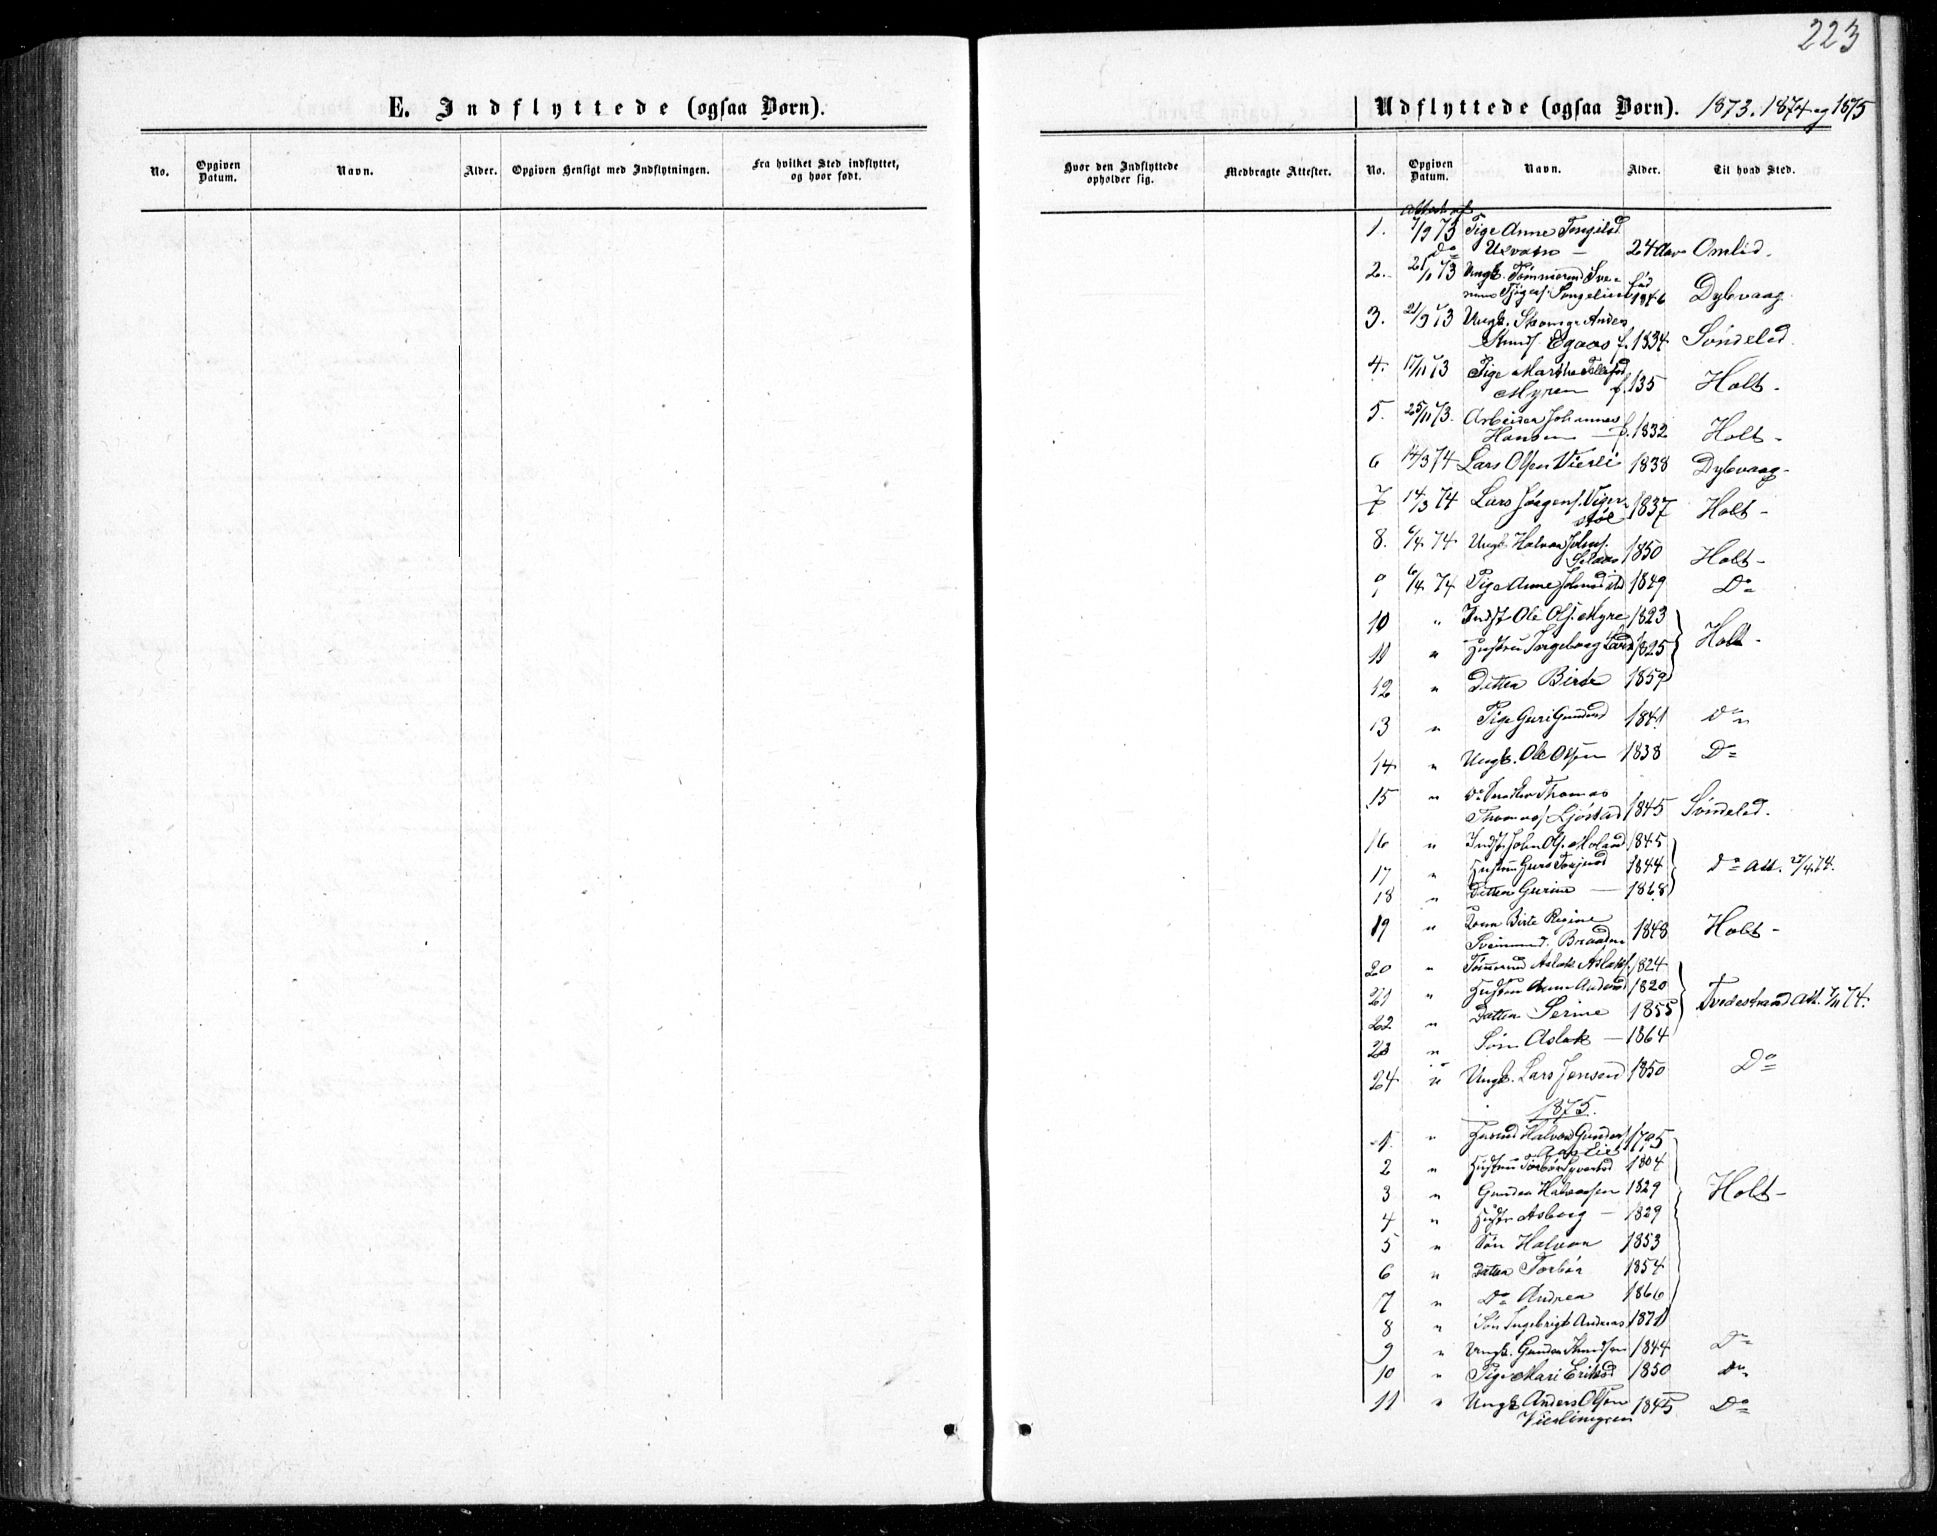 223
E. Indflyttede (ogsaa Børn).
No. Opgiven Datum. Navn. Alder. Opgiven Hensigt med Indflytningen. Fra hvilket Sted indflyttet, og hvor født.
Hvor den Indflyttede opholder sig. Medbragte Attester.
Udflyttede (ogsaa Børn). 1873. 1874 og 1875
No. Opgiven Datum. Navn. Alder. Til hvad Sted.
1. 7/9 73 Pige Anne
Do 24 Aar Omlid.
2. 73 Ungk. Tømmermd Sve- Fød
1846 Dybvaag
3. 21/9 73 Ungk. Anders
Knuds. Egaas f. 1834 Søndeled.
4. 17/11 73 Pige Marthe
Myren f. 135 Holt -
5. 25/11 73. Arbeider Johannes
Hansen f. 1832 Holt -
6 14/3 74 Lars Olsen Vierli 1838 Dybvaag -
7 14/3 74 Lars Jørgens. 1837 Holt -
støl
8. 6/4 74 Ungk Halvor Johns. 1850 Holt -
9 6/4 74 Pige Anne 1849 Do
10 " Indst Ole Ols. Myre 1823
11 " Hustru Ingeborg Larsd 1825 Holt -
12 " Datter Birte 1859
13 " Pige Guri Gundersd 1841 Do
14 " Ungk. Ole Olsen 1838 Do
15 " Do Thomas
Thomas. Ljøstad 1845 Søndeled.
16 " Indst John Ols. Moland 1845
17 " Hustru 1844 Do Att. 27/4 74.
18 " Datter Gurine — 1868
19 " Kone Birte Regine
Braaten 1848 Holt -
20 " Tømmermd Aslak Aslaks. 1824
21 " Hustru Anne Andersd 1820
22 " Datter Serine 1855 Tvedestrand Att. 7/11 74.
23 " Søn Aslak — 1864
24 " Ungk. Lars Jensen 1850 Do
1875.
1. " Halvor Gunders. 1795
Aaslie
2 " Hustru Torbør 1804
3 " Gunder Halvorsen 1829 Holt -
4 " Hustr Asborg — 1829
5 " Søn Halvor 1853
6 " Datter Torbør 1854
7 " Do Andrea 1866
8 " Søn Ingebrigt Andreas 1871
9 " Ungk. Gunder Knudsen 1844 Do
10 " Pige Mari Eriksd 1850 Do
11 " Ungk Anders Olsen 1845 Do
Vierlimyren